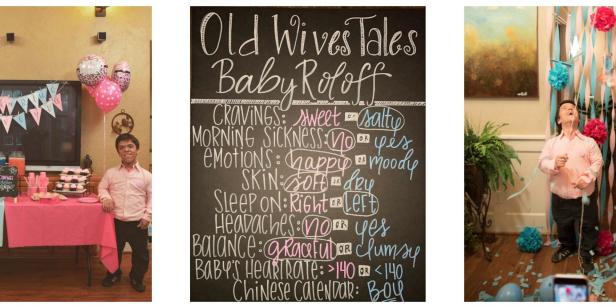 Old Wives Tales
Baby Roloff
CRAVINGS: sweet OR salty
MORNING SICKNESS: NO OR yes
eMOTIONS: happy OR moody
SKIN: soft OR dry
SLEEP ON: RiGHT OR Left
HEADACHES: NO OR yes
BALANCE: graceful OR clumsy
BABY'S HEARTRATE: >140 OR <140
CHINESE CALENDAR: BOY